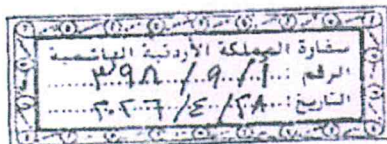 سفارة المملكة الأردنية الهاشمية
الرقم : ٣٩٨ / ٩ / ١
التاريخ : ٢٠٢٦ / ٤ / ٢٨